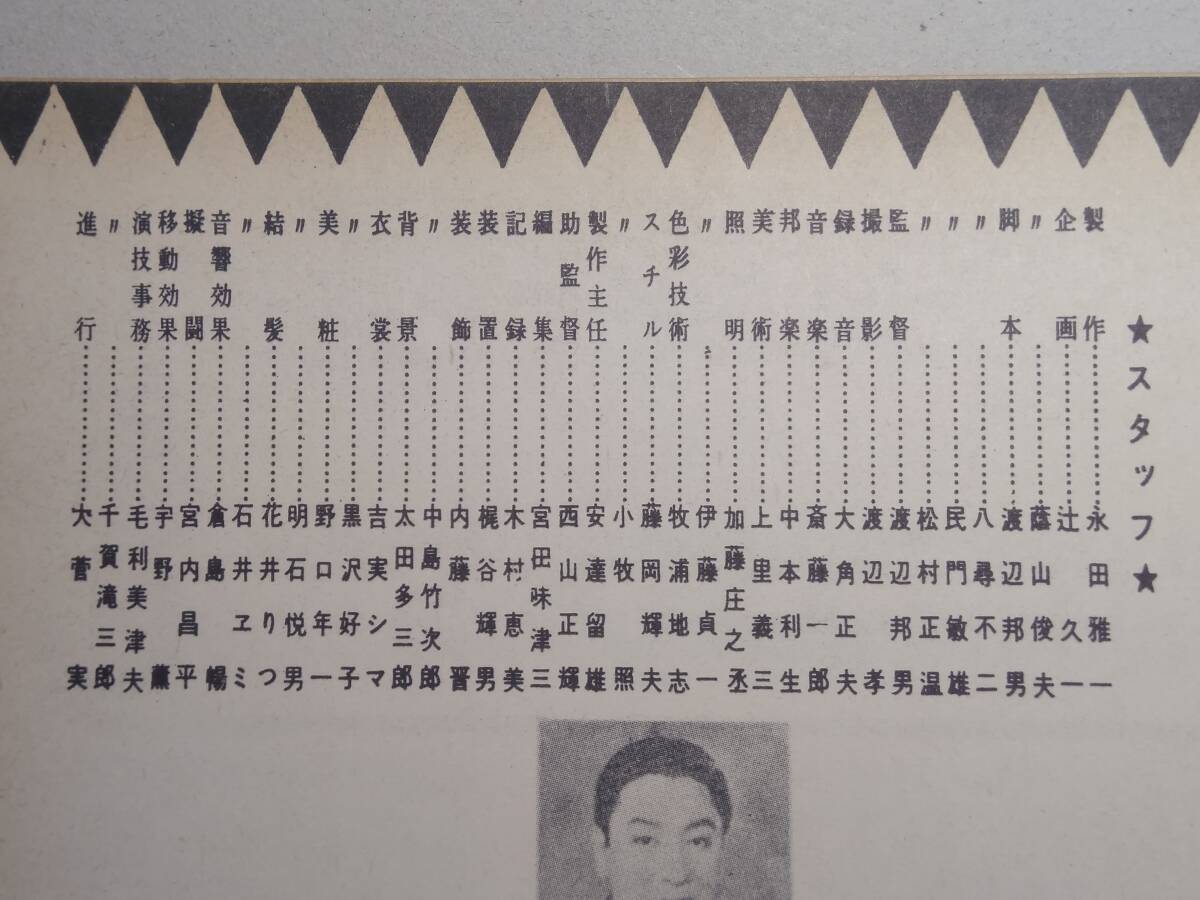 ★スタッフ★
製作……永田雅一
企画……辻久一
〃……蔭山俊夫
脚本……渡辺邦男
〃……八尋不二
〃……民門敏雄
〃……松村正温
監督……渡辺邦男
撮影……渡辺孝
録音……大角正夫
音楽……斎藤一郎
邦楽……中本利生
美術……上里義三
照明……加藤庄之丞
〃……伊藤貞一
色彩技術……牧浦地志
スチル……藤岡輝夫
〃……小牧照
製作主任……安達留雄
助監督……西山正輝
編集……宮田味津三
記録……木村恵美
装置……梶谷輝男
装飾……内藤晋
〃……中島竹次郎
背景……太田多三郎
衣裳……吉実シマ
〃……黒沢好子
美粧……野口年一
〃……明石悦男
結髪……花井りつ
〃……石井ヱミ
音響効果……倉島暢
擬闘……宮内昌平
移動効果……宇野薫
演技事務……毛利美津夫
〃……千賀滝三郎
進行……大菅実